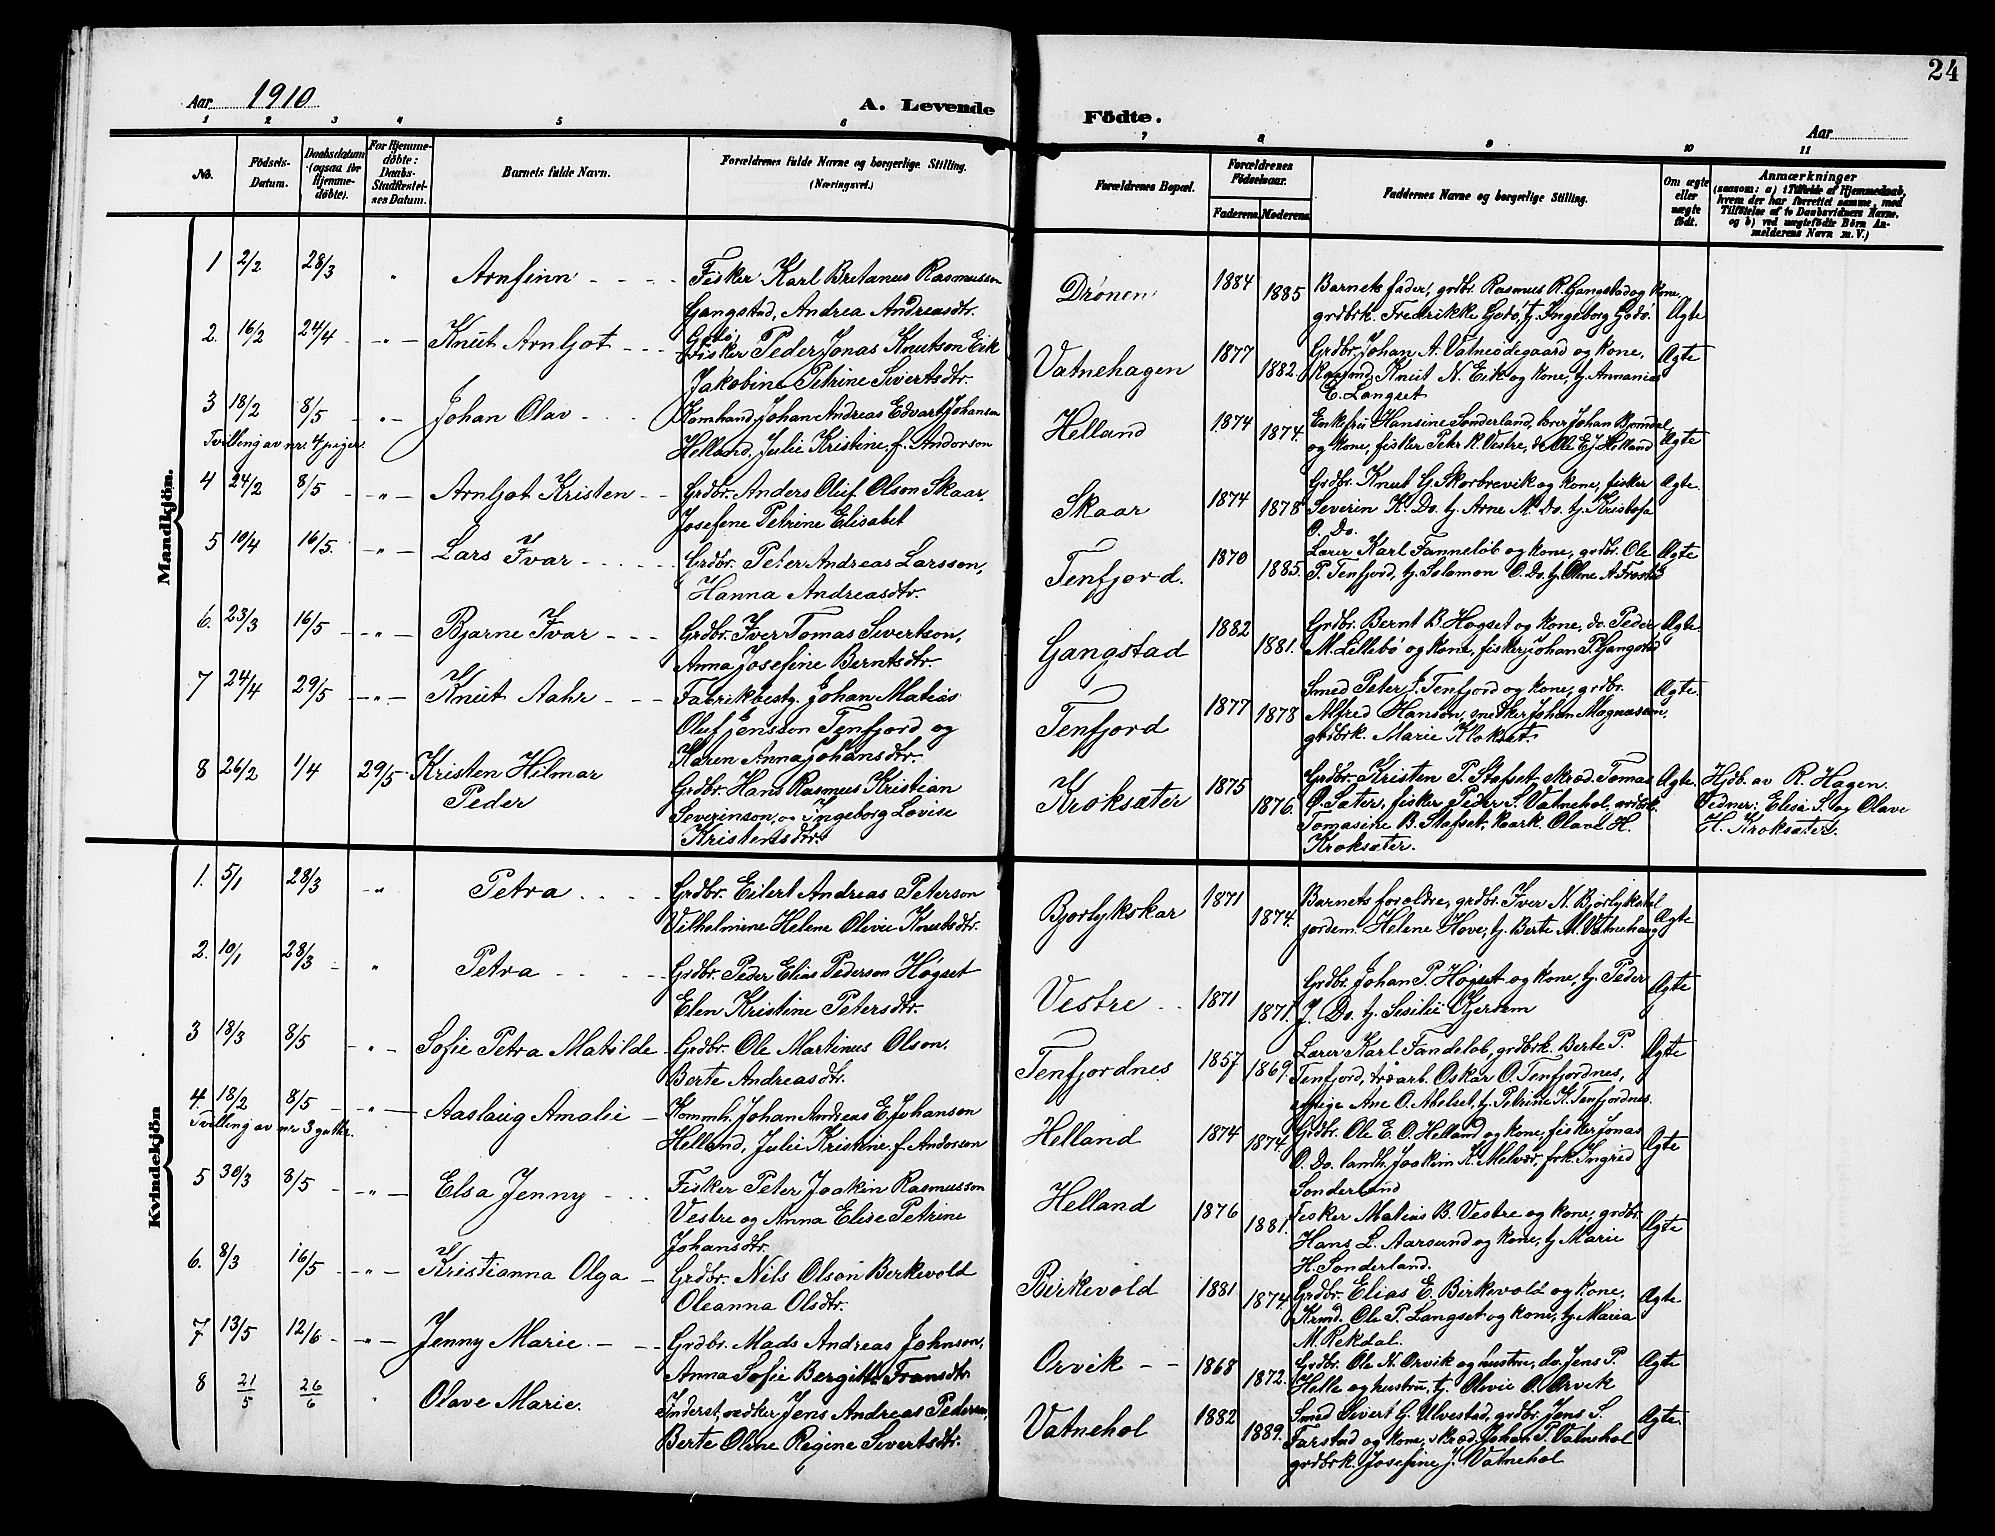 24
Aar 1910
A. Levende
Födte.
Aar
1 2 3 4 5 6 7 8 9 10 11
No.
Födsels-Datum.
Daabsdatum (ogsaa for Hjemmedöbte).
For Hjemmedøbte: Daabs-Stadfæstelses Datum.
Barnets fulde Navn.
Forældrenes fulde Navne og borgerlige Stilling.
(Næringsvei.)
Forældrenes Bopæl.
Forældrenes Födselsaar.
Faderens. Moderens.
Faddernes Navne og borgerlige Stilling.
Om ægte eller uægte født.
Anmærkninger
(saasom: a) i Tilfælde af Hjemmedaab, hvem der har forrettet samme, med Tilföielse af to Daabsvidners Navne, og b) ved uægtefödte Börn Anmelderens Navn m. V.)
Mandkjön.
1 2/2 28/3 " Arnfinn - - - - Fisker Karl Bretanus Rasmusson
Gangstad, Andrea Andreasdtr.
Drønen 1884 1885 Barnets fader, grdbr. Rasmus R. Gangstad og kone,
grdbrk. Fredrikke Godø, tj. Ingeborg Godø. Ægte
2. 16/2 24/4 - " - Knut Arnljot - - - Godø,
Fisker Peder Jonas Knutson Eik
Jakobine Petrine Sivertsdtr.
Vatnehagen 1877 1882. Grdbr. Johan A. Vatneødegaard og kone,
Knut N. Eik og kone, tj. Annania
E. Langset Ægte
3 18/2 8/5 - " - Johan Olav - - - Komhand. Johan Andreas Edvart Johanson
Tvilling av nr. 4 piger.
Helland, Julie Kristine f. Anderson
Helland 1874 1874. Enkefru Hansine Sonderland, Johan
og kone, fisker Petr R. Vestre, do Ole E. J. Helland Ægte
4 24/2 8/5 - " - Arnljot Kristen - - Grdbr. Anders Oluf Olson Skaar.
Josefene Petrine Elisabet
Skaar 1874 1878 Grdbr. Knut G. Skorbrevik og kone, fisker
Severin K. Do. tj. Arne M. Do. tj. Kristofa
O. Do. Ægte.
5 10/4 16/5. - " - Lars Ivar - - - - - Grdbr. Peter Andreas Larsson,
Hanna Andreasdtr.
Tenfjord. 1870 1885. Lærer Karl Fanneløb og kone, grdbr. Ole
P. Tenfjord, tj. Salomon O. Do. tj. Oline A Frostad Ægte
6. 23/3 16/5 - " - Bjarne Ivar - - - Grdbr. Iver Tomas Sivertson,
Anna Josefine Berntsdtr.
Gangstad 1882 1881. Grdbr. Bernt B. Høgset og kone, do. Peder
M. Lillebø og kone, fisker Johan P. Gangstad Ægte.
7 24/4 29/5 - " - Knut Aahr - - - Fabrikbestg. Johan Matias
Oluf Jensson Tenfjord og
Karen Anna Johansdtr.
Tenfjord 1877 1878 Smed Peter J. Tenfjord og kone, grdbr.
Alfred Hanson, snekker Johan Magnusson,
grdbrk. Marie Klokset. Ægte.
8 26/2 1/4 29/5 - Kristen Hilmar
Peder
Grdbr. Hans Rasmus Kristian
Severinson, og Ingeborg Lovise
Kristensdtr.
Kroksæter 1875 1876. Grdbr. Kristen P. Stafset, skræd. Tomas
O. Sæter, fisker Peder S. Vatnehol, grdbrk.
Tomasine B. Stafset, kaark. Olave H.
Kroksæter. Ægte. Hjdb. av R. Hagen.
Vidner: Elisa P. og Olave
H. Kroksæter.
Kvindekjön
1. 5/1 28/3 " Petra - - - - Grdbr. Eilert Andreas Peterson
Vilhelmine Helene Olivie Knutsdtr.
Bjorlykskar 1871 1874. Barnets foroldre, grdbr. Iver N. Bjorlykstøl
jordem. Helene Hove, tj. Berte M. Vatnehaug Ægte
2. 10/1 28/3 - " Petra - - - - - Grdbr. Peder Elias Pederson Høgset
Elen Kristine Petersdtr.
Vestre - - 1871 1871. Grdbr. Johan P. Høgset og kone, tj. Peder
J. Do. tj. Sisilie Gjerdem Ægte
3 18/3 8/5 - " - Sofie Petra Matilde - Grdbr. Ole Martinus Olson.
Berte Andreasdtr.
Tenfjordnes 1857 1869. Lærer Karl Fandeløb, grdbrk. Berte P.
Tenfjord, træarb. Oskar O. Tenfjordnes,
Ane O. Abelset, tj. Petrine K. Tenfjordnes. Ægte
4. 18/2 8/5 - " - Aaslaug Amalie - Kommh. Johan Andreas E. Johanson
Tvilling av nr 3 gutter.
Helland, Julie Kristine f. Anderson
Helland 1874 1874. Grdbr. Ole E. O. Helland og kone, fisker Jonas
O. Do. landh. Joakim K. Melvær, frk. Ingrid
Sonderland Ægte
5 30/3 8/5 - " - Elsa Jenny - - - Fisker Peter Joakin Rasmusson
Vestre og Anna Elise Petrine
Johansdtr.
Helland 1876 1881. Fisker Matias B. Vestre og kone, grdbr.
Hans L. Aarsund og kone, tj. Marie
H. Sonderland. Ægte
6. 8/3 16/5 - " - Kristianna Olga - Grdbr. Nils Olson Berkevold
Oleanna Olsdtr.
Birkevold 1881 1874. Grdbr. Elias E. Birkevold og kone,
Krmd. Ole P. Langset og kone, tj. Maria
M. Rekdal. Ægte
7 13/5 12/6 - " - Jenny Marie - - - Grdbr. Mads Andreas Johnson,
Anna Sofie Bergitte Fransdtr
Orvik - - 1868 1872. Grdbr. Ole N. Orvik og hustru, do. Jens P.
Helle og hustru, tj. Olivie O. Orvik Ægte
8 21/5 26/6 " Olave Marie. Inderst, Jens Andreas Pederson,
Berte Oline Regine Sivertsdtr.
Vatnehol 1882 1889. Smed Sivert G. Ulvestad, grdbr. Jens S.
Farstad og kone, skræd. Johan P. Vatnehol
grdbrk. Josefine J. Vatnehol Ægte.